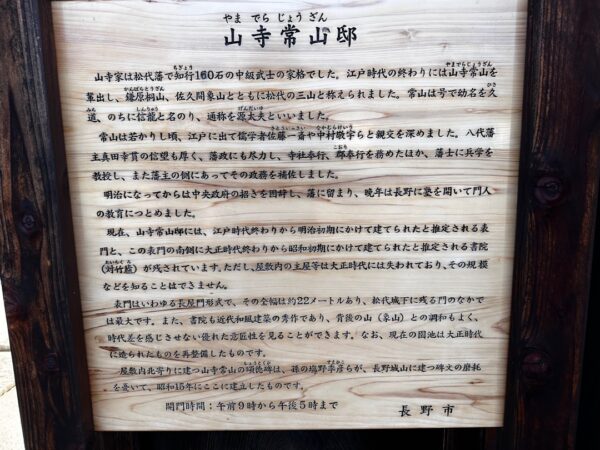 やまでらじょうざん
山寺常山邸
山寺家は松代藩で知行160石の中級武士の家格でした。江戸時代の終わりには山寺常山を
輩出し、鎌原桐山、佐久間象山とともに松代の三山と称えられました。常山は号で幼名を久
道、のちに信龍と名のり、通称を源太夫といいました。
常山は若かりし頃、江戸に出て儒学者佐藤一斎や中村敬宇らと親交を深めました。八代藩
主真田幸貫の信望も厚く、藩政にも尽力し、寺社奉行、郡奉行を務めたほか、藩士に兵学を
教授し、また藩主の側にあってその政務を補佐しました。
明治になってからは中央政府の招きを固辞し、藩に留まり、晩年は長野に塾を開いて門人
の教育につとめました。
現在、山寺常山邸には、江戸時代終わりから明治初期にかけて建てられたと推定される表
門と、この表門の南側に大正時代終わりから昭和初期にかけて建てられたと推定される書院
(対竹廬)が残されています。ただし、屋敷内の主屋等は大正時代には失われており、その規模
などを知ることはできません。
表門はいわゆる長屋門形式で、その全幅は約22メートルあり、松代城下に残る門のなかで
は最大です。また、書院も近代和風建築の秀作であり、背後の山(象山)との調和もよく、
時代差を感じさせない優れた意匠性を見ることができます。なお、現在の園池は大正時代
に造られたものを再整備したものです。
屋敷内北寄りに建つ山寺常山の頌徳碑は、孫の塩野季彦らが、長野城山に建つ碑文の磨耗
を憂いて、昭和15年にここに建立したものです。
開門時間：午前9時から午後5時まで
長野市